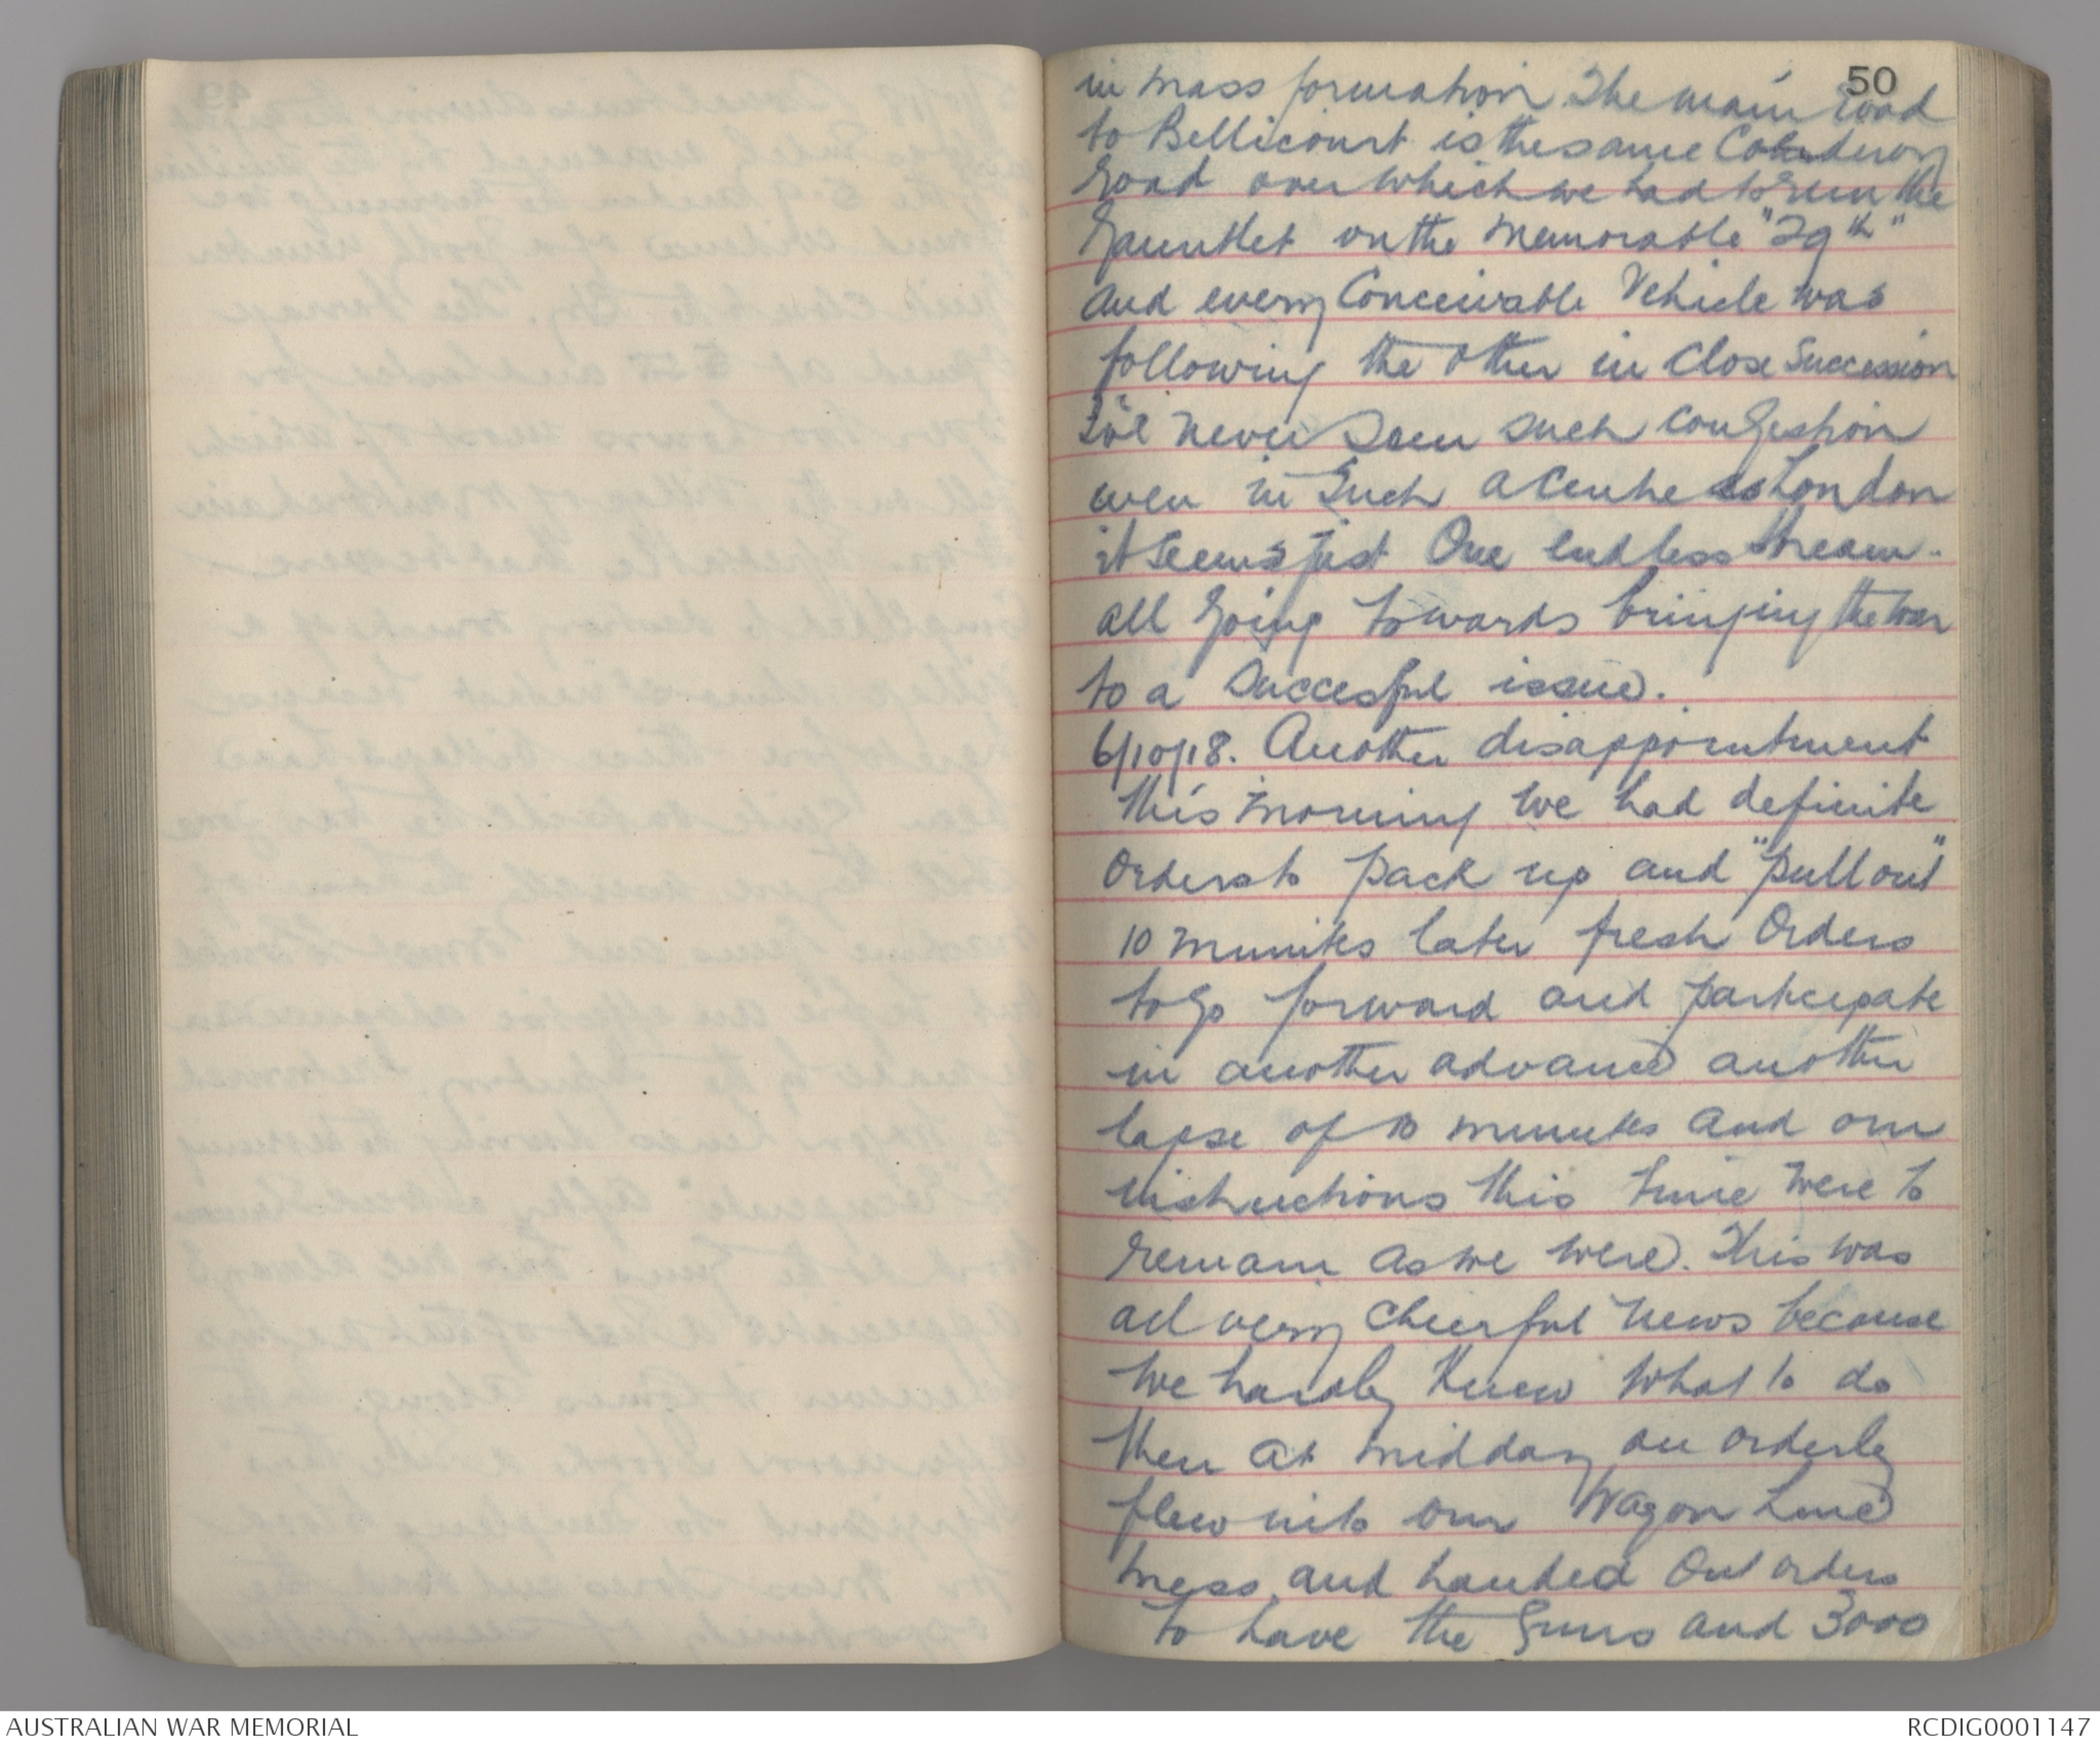 50
in mass formation. The main road
to Bellicourt is the same
road over which we had to run the
Gauntlet on the memorable "29th"
and every Conceivable Vehicle was
following the other in close succession
I've never seen such congestion
even in such a centre as London
it seems just One endless stream -
all going towards bringing the war
to a succesful issue.
6/10/18. Another disappointment
this morning we had definite
orders to pack up and "pull out"
10 minutes later fresh Orders
to go forward and participate
in another advance another
lapse of 10 minutes and our
instructions this time were to
remain as we were. This was
all very cheerful news because
we hardly knew what to do
then at midday an orderly
flew into our Wagon Line
mess, and handed Out orders
to have the Guns and 3000
AUSTRALIAN WAR MEMORIAL
RCDIG0001147